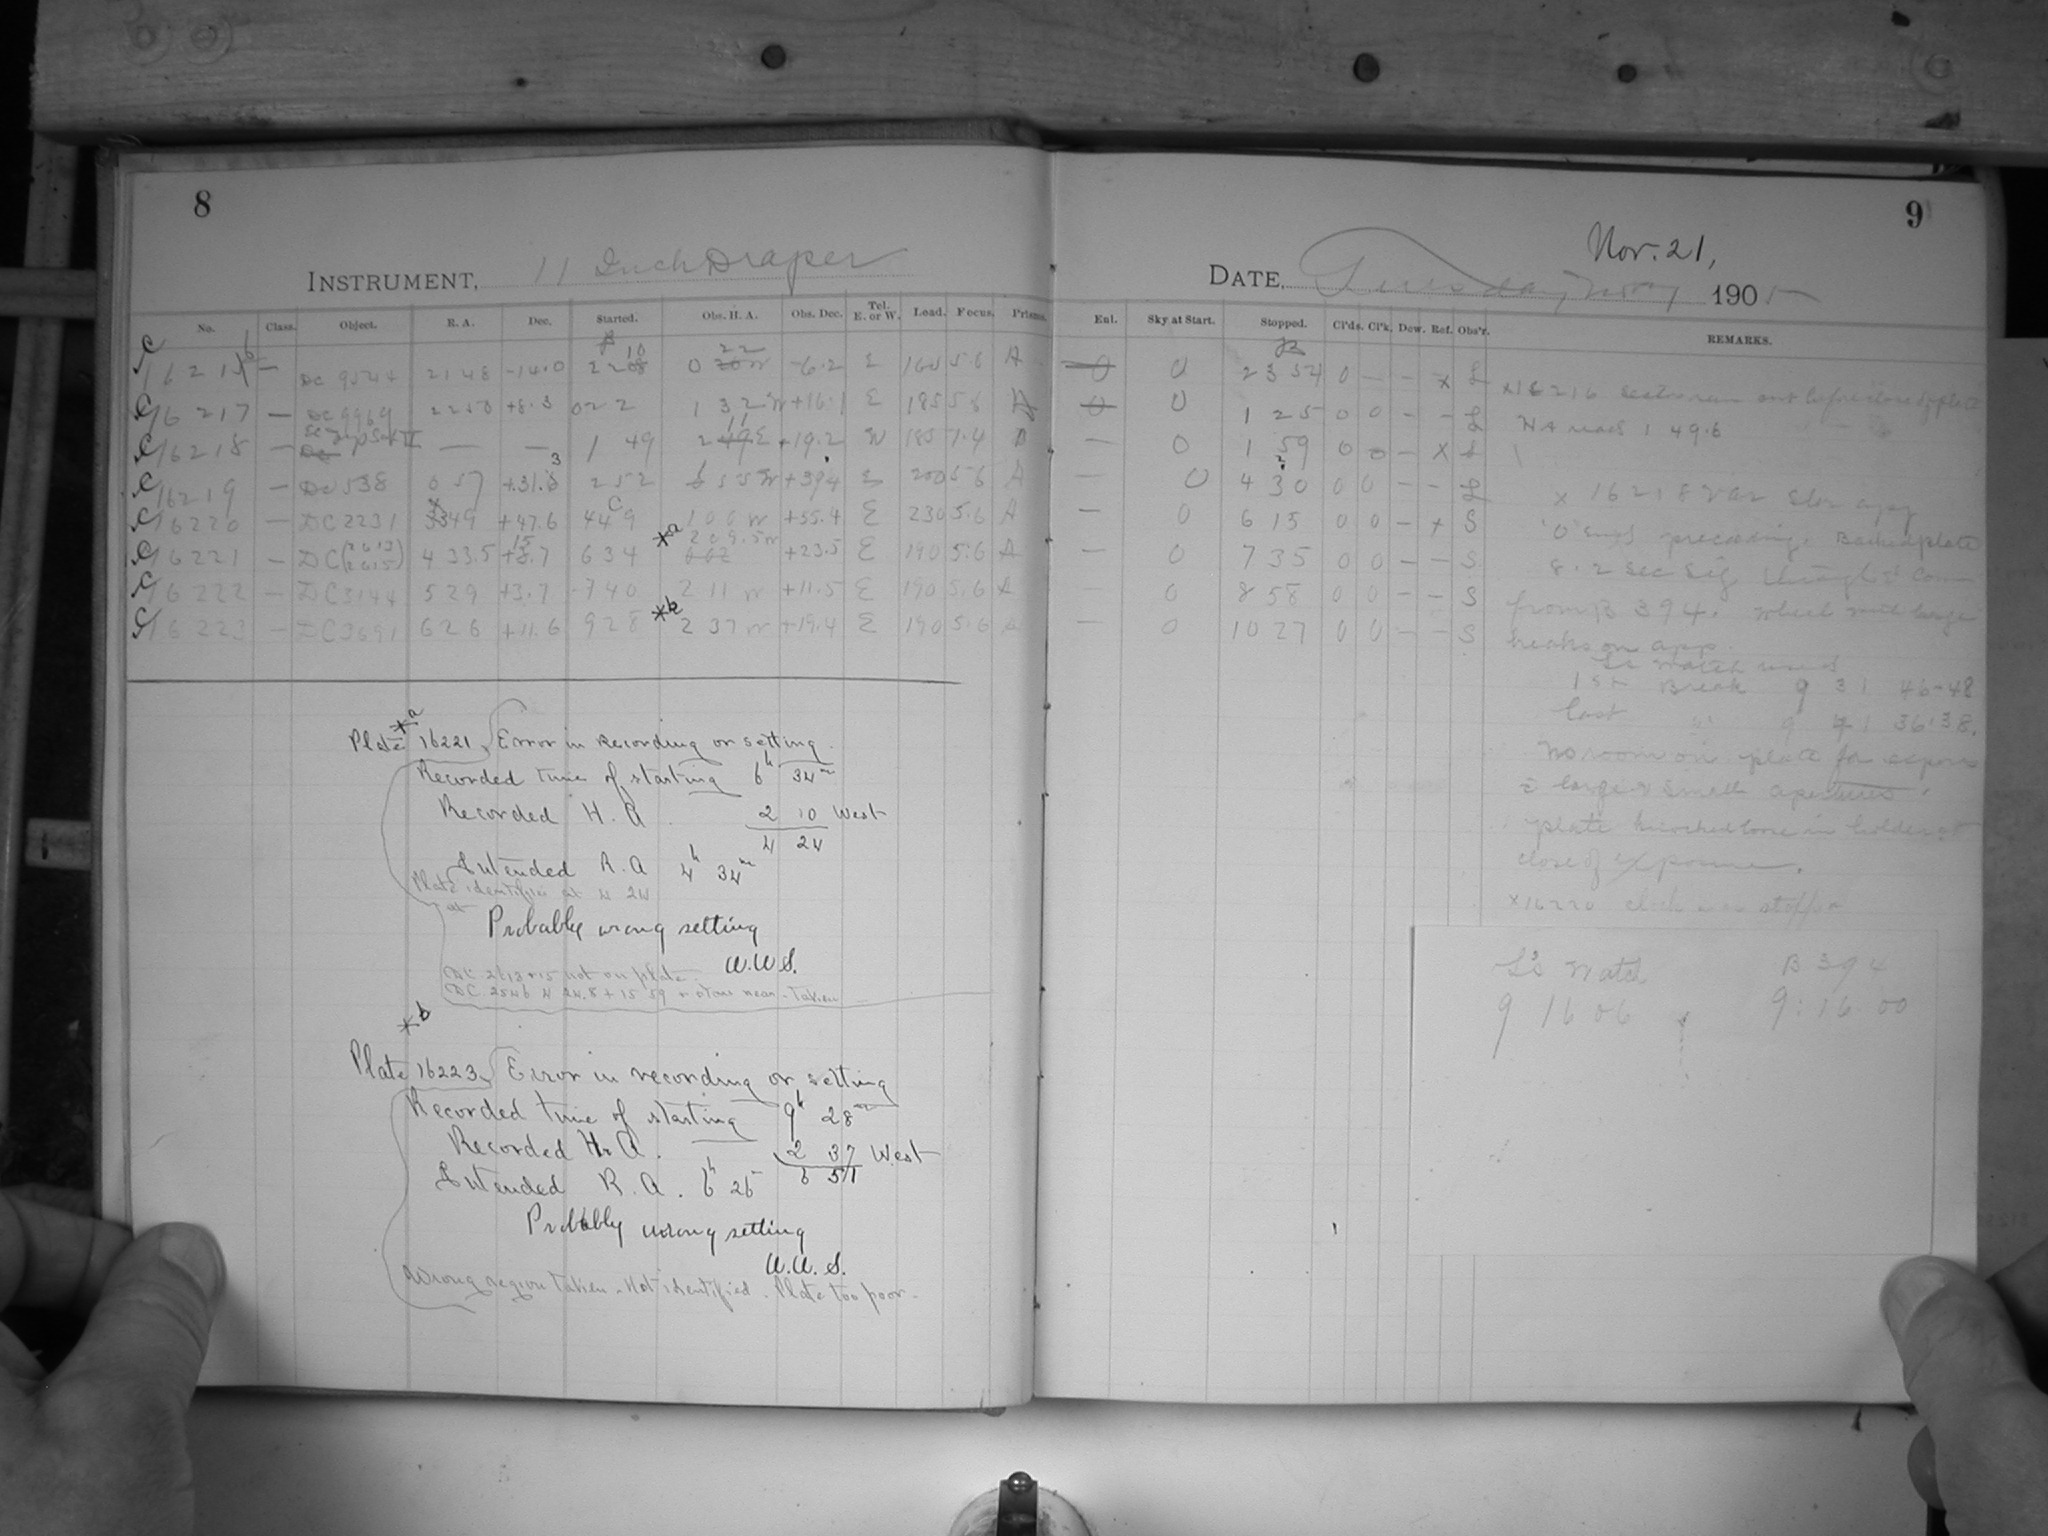 8
INSTRUMENT, 11 Inch Draper
No. Class. Object. R. A. Dec. Started. Obs. H. A. Obs. Dec. Tel. E. or W. Load. Focus. Prisms.
C 16216 — DC 9544 21 48 -14.0 22 10 0 22 W -6.2 E 160 5.6 A
C 16217 — DC 9969 22 50 +8.3 0 22 1 32 W +16.1 E 185 5.6 A
C 16218 — — — 1 49 2 11 E +19.2 W 185 7.4 0
C 16219 — DC 538 0 57 +31.3 2 52 1 55 W +39.4 E 200 5.6 A
C 16220 — DC 2231 3 49 +47.6 4 49 1 00 W +55.4 E 230 5.6 A
C 16221 — DC (2613 2615) 4 33.5 +15.7 6 34 *a 2 09.5 W +23.5 E 190 5.6 A
C 16222 — DC 3144 5 29 +3.7 7 40 2 11 W +11.5 E 190 5.6 A
C 16223 — DC 3691 6 26 +11.6 9 28 *b 2 37 W +19.4 E 190 5.6 A
*a
Plate 16221, Error in recording or setting.
Recorded time of starting 6h 34m
Recorded H. A. 2 10 West
4 24
Intended R. A 4h 34m
Plate identified at 4 24
Probably wrong setting
W. W. S.
DC. 2613+15 not on plate.
DC. 2546 4 24.8 + 15 59 + stars near - taken
*b
Plate 16223, Error in recording or setting
Recorded time of starting 9h 28m
Recorded H. A. 2 37 West
6 51
Intended R. A. 6h 26
Probably wrong setting
W. W. S.
Wrong region taken. Not identified. Plate too poor.
9
Nov. 21,
DATE, Tuesday Nov 1905
Enl. Sky at Start. Stopped. Cl'ds. Cl'k. Dew. Ref. Obs'r. REMARKS.
0 0 23 54 0 — — x L
0 0 1 25 0 0 — — L
— 0 1 59 0 0 — x L
— 0 4 30 0 0 — — L
— 0 6 15 0 0 — + S
— 0 7 35 0 0 — — S
— 0 8 58 0 0 — — S
— 0 10 27 0 0 — — S
x 16216 Sector ran out before close of plate
HA reads 1 49.6
x 16218
"0" ends preceding. Backed plate
8.2 sec sig through
from B 394. which with large
breaks on app.
L's watch used
1st Break 9 31 46-48
last " 9 41 36-38.
No room on plate for expos
large & small apertures.
plate knocked loose in holder at
close of exposure.
x 16220 clock was stopped
L's Watch B 394
9 16 06 9:16 00